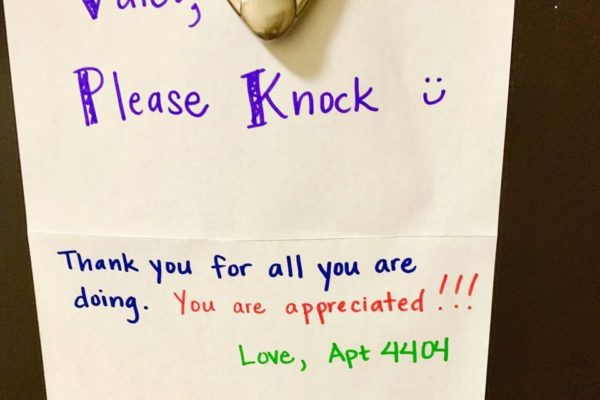 Please Knock
Thank you for all you are
doing. You are appreciated!!!
Love, Apt 4404